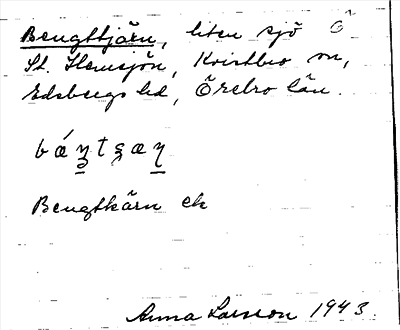 Bengttjärn, liten sjö Ö
St. Hemsjön, Kvistbro sn,
Edsbergs hd, Örebro län.
Bengtkärn ek
Anna Larsson 1943.